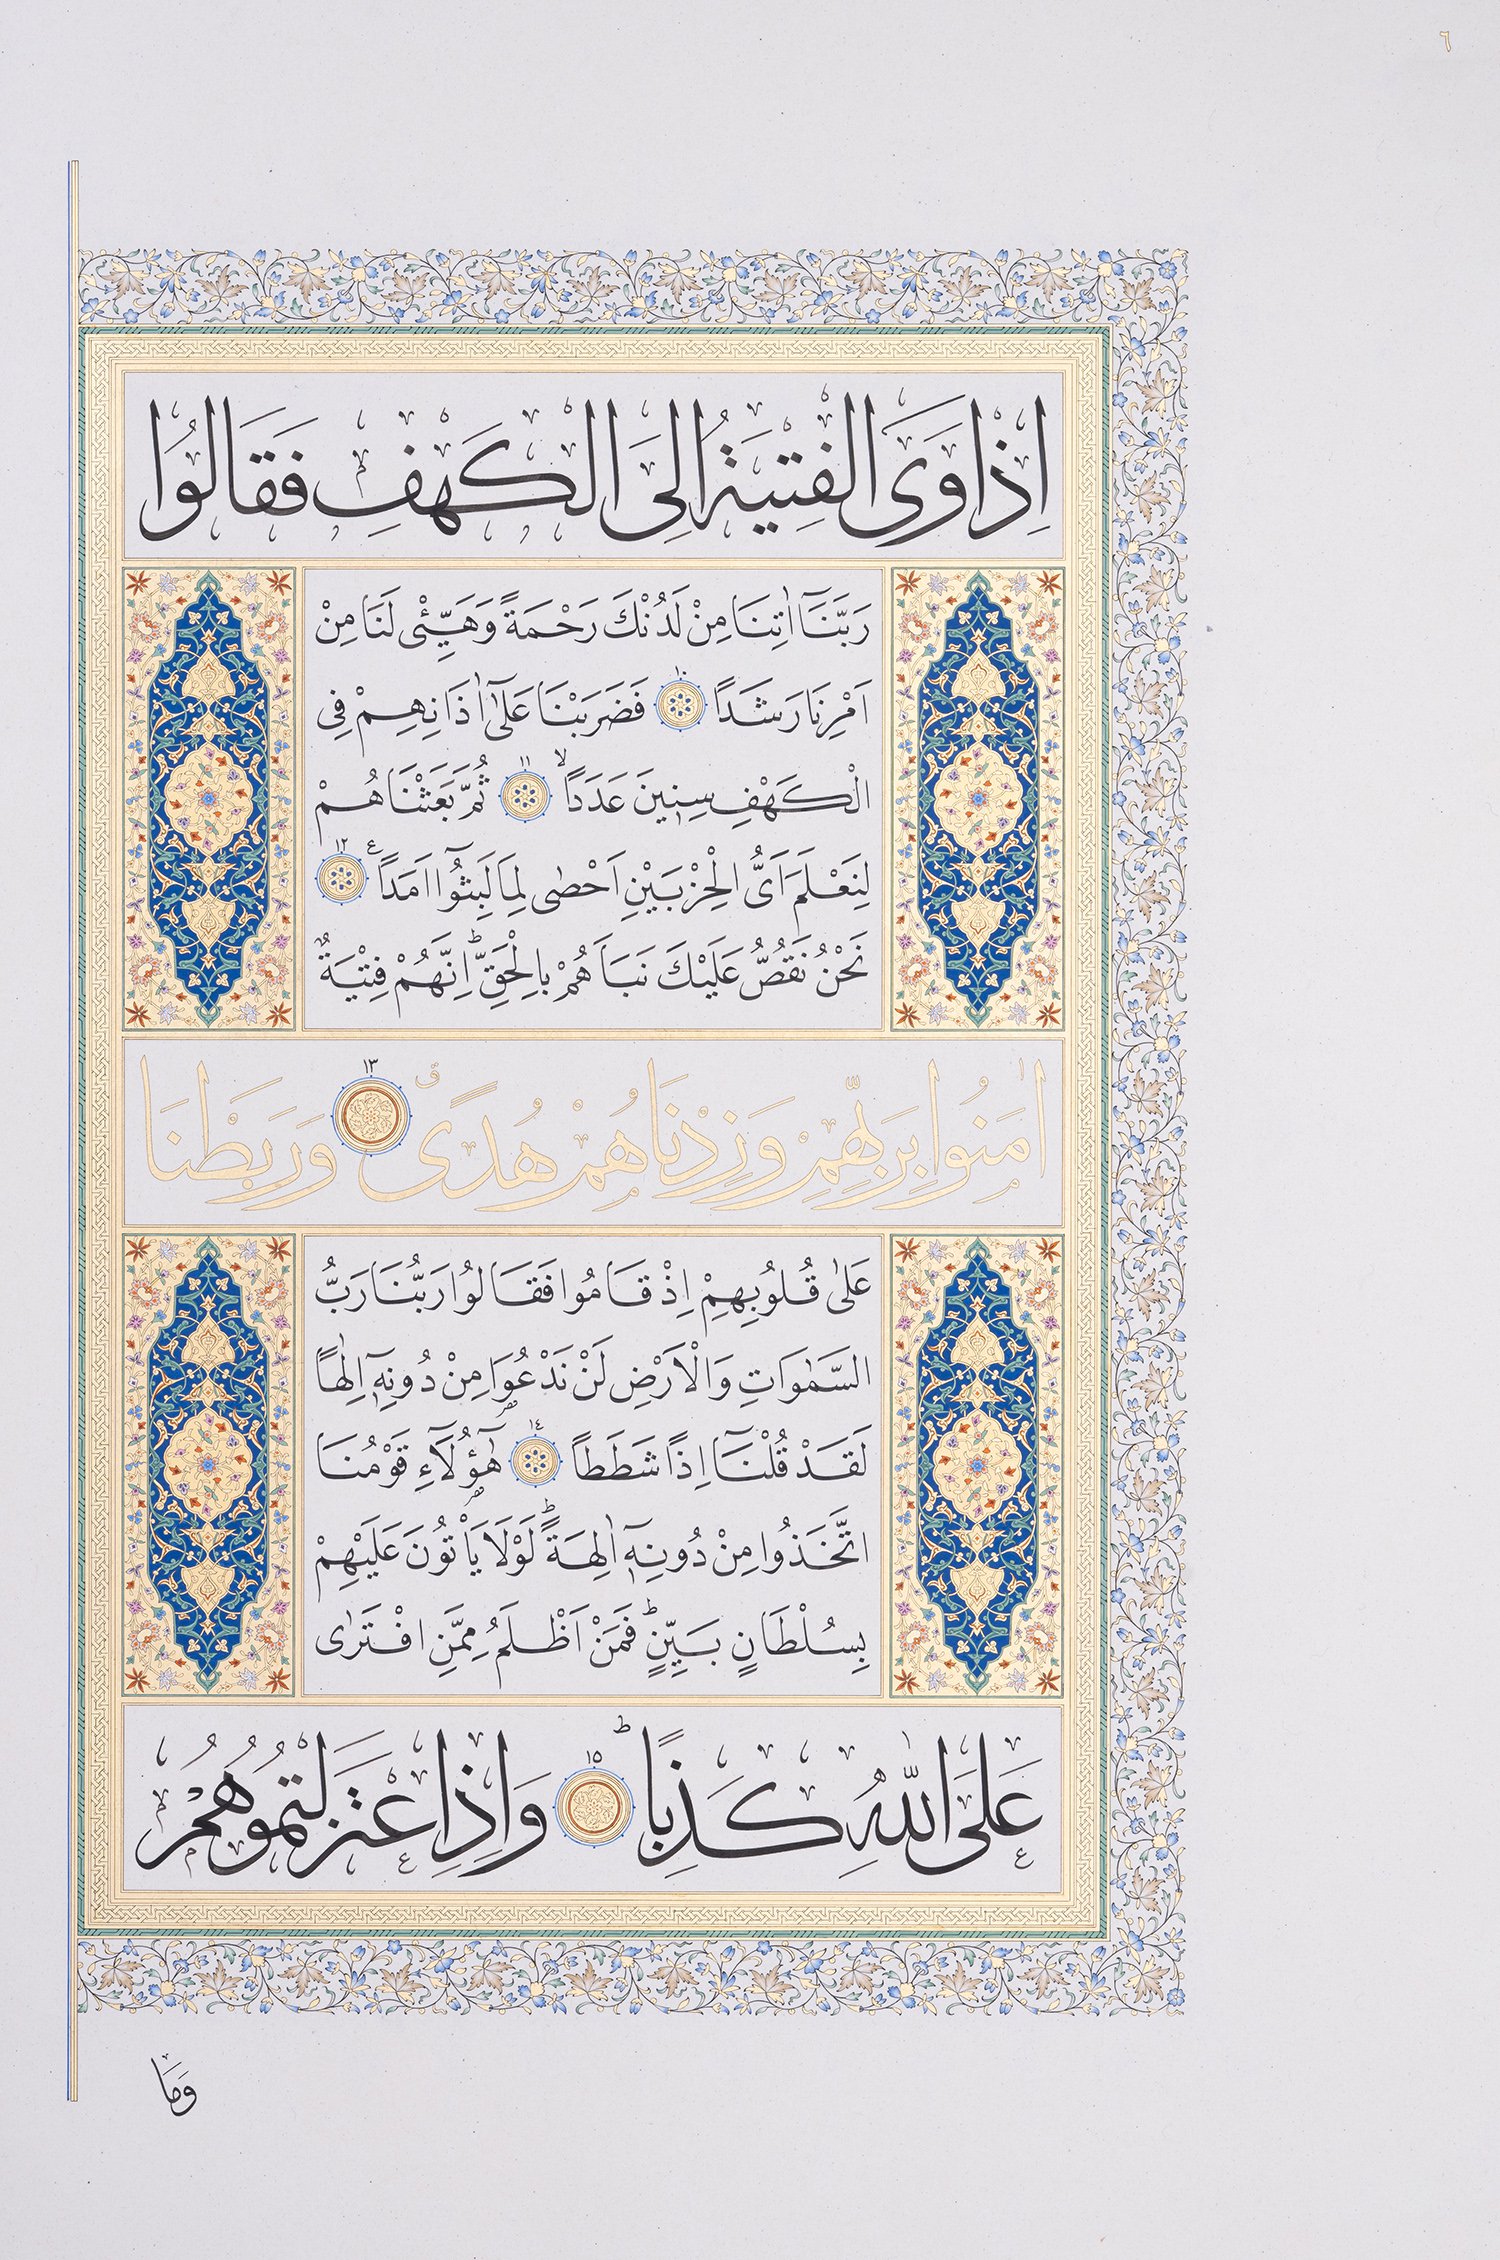 ٦
اِذْ اَوَى الْفِتْيَةُ اِلَى الْكَهْفِ فَقَالُوا
رَبَّنَٓا اٰتِنَا مِنْ لَدُنْكَ رَحْمَةً وَهَيِّئْ لَنَا مِنْ
اَمْرِنَا رَشَدًا ١٠ فَضَرَبْنَا عَلٰٓى اٰذَانِهِمْ فِي
الْكَهْفِ سِنٖينَ عَدَدًاۙ ١١ ثُمَّ بَعَثْنَاهُمْ
لِنَعْلَمَ اَيُّ الْحِزْبَيْنِ اَحْصٰى لِمَا لَبِثُٓوا اَمَدًا ع ١٢
نَحْنُ نَقُصُّ عَلَيْكَ نَبَاَهُمْ بِالْحَقِّؕ اِنَّهُمْ فِتْيَةٌ
اٰمَنُوا بِرَبِّهِمْ وَزِدْنَاهُمْ هُدًىۗ ١٣ وَرَبَطْنَا
عَلٰى قُلُوبِهِمْ اِذْ قَامُوا فَقَالُوا رَبُّنَا رَبُّ
السَّمٰوَاتِ وَالْاَرْضِ لَنْ نَدْعُوَا مِنْ دُونِهٖٓ اِلٰهًا
لَقَدْ قُلْنَٓا اِذًا شَطَطًا ١٤ هٰٓؤُ۬لَٓاءِ قَوْمُنَا
اتَّخَذُوا مِنْ دُونِهٖٓ اٰلِهَةًؕ لَوْلَا يَاْتُونَ عَلَيْهِمْ
بِسُلْطَانٍ بَيِّنٍؕ فَمَنْ اَظْلَمُ مِمَّنِ افْتَرٰى
عَلَى اللّٰهِ كَذِبًاؕ ١٥ وَاِذِ اعْتَزَلْتُمُوهُمْ
وَمَا